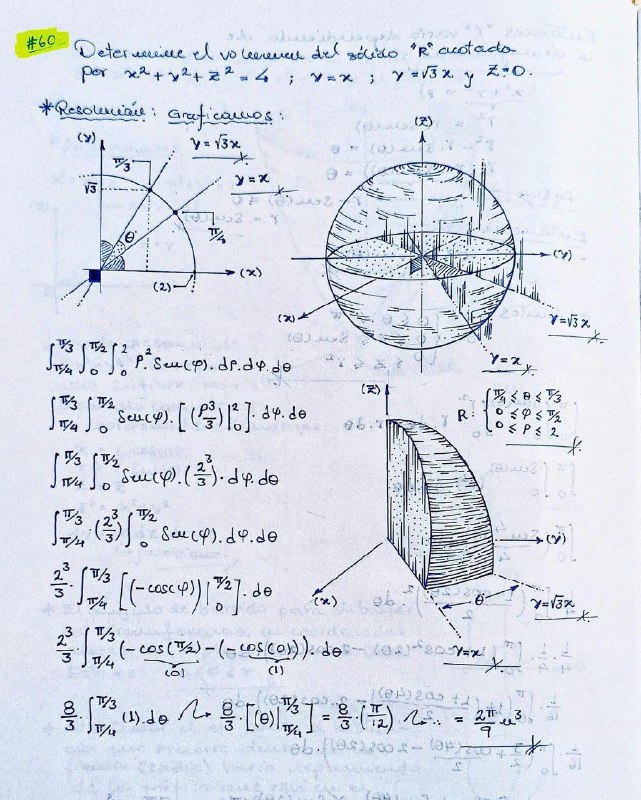 #60. Determine el volumen del sólido "R" acotado
por x² + y² + z² = 4 ; y = x ; y = √3x y z = 0.
* Resolución: Graficamos:
(y)
π/3
y = √3x
y = x
√3
θ
π/4
(2)
(x)
(z)
(y)
(x)
y = √3x
y = x
∫π/4^π/3 ∫0^π/2 ∫0^2 ρ² · Sen(φ) · dρ · dφ · dθ
∫π/4^π/3 ∫0^π/2 Sen(φ) · [(ρ³/3)|0^2] · dφ · dθ
∫π/4^π/3 ∫0^π/2 Sen(φ) · (2³/3) · dφ · dθ
∫π/4^π/3 · (2³/3) ∫0^π/2 Sen(φ) · dφ · dθ
2³/3 · ∫π/4^π/3 [(-cos(φ))|0^π/2] · dθ
2³/3 · ∫π/4^π/3 (-cos(π/2) - (-cos(0))) · dθ
(0) (1)
(z)
R: { π/4 ≤ θ ≤ π/3
0 ≤ φ ≤ π/2
0 ≤ ρ ≤ 2
(y)
(x)
θ
y = √3x
y = x
8/3 · ∫π/4^π/3 (1) · dθ ↝ 8/3 · [(θ)|π/4^π/3] = 8/3 · (π/12) ↝ ∴ = 2π/9 u³